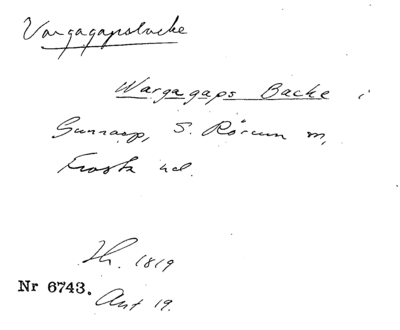 Vargagapsbacke
Wargagaps Backe i
Gunnarp, S. Rörum m,
Frosta hd.
Th. 1819
Nr 6743.
Akt 19.